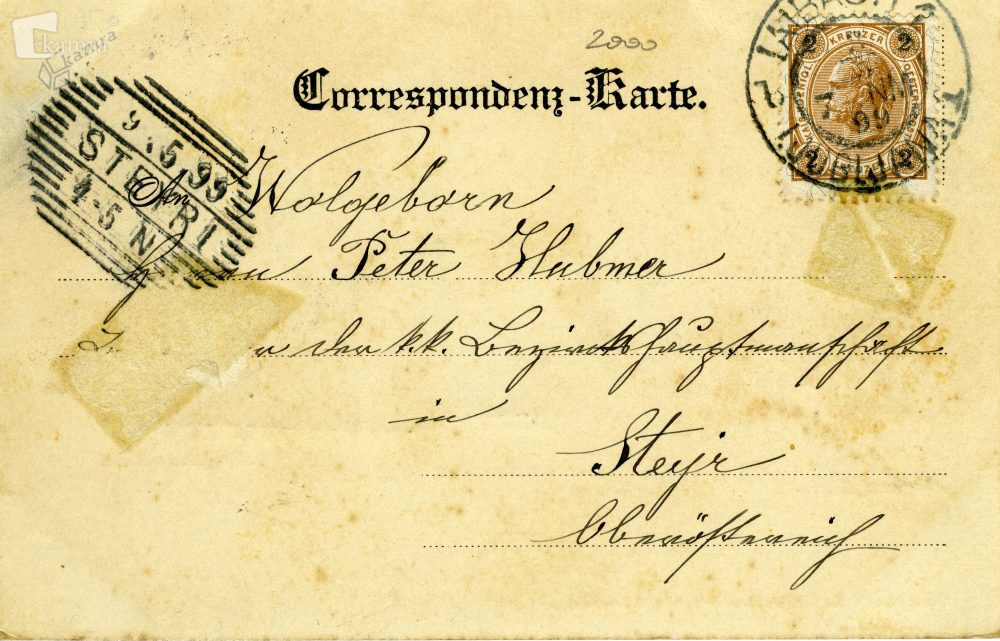 kamra
kamra
2000
Correspondenz-Karte.
LAIBACH
LJUBLJANA
7
99
2 KREUZER 2
2 2
9.5.99
STEYR 1
4-5 N
An Wolgeborn
Herrn Peter Hubmer
der k.k. Bezirkshauptmanschaft
in
Steyr
Oberösterreich